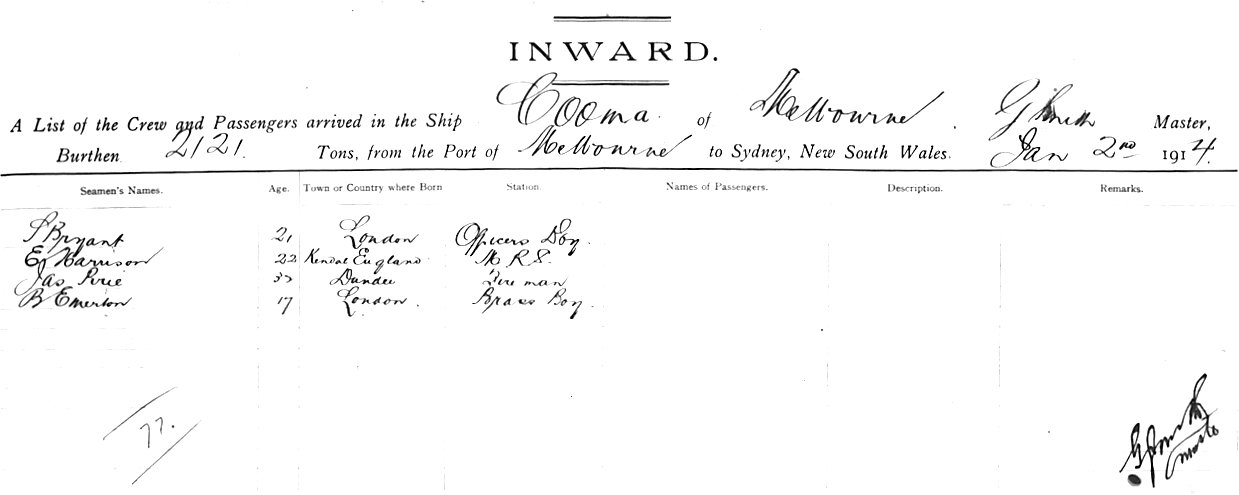 INWARD.
A List of the Crew and Passengers arrived in the Ship Cooma of Melbourne. G Smith Master,
Burthen 2121. Tons, from the Port of Melbourne to Sydney, New South Wales. Jan 2nd 1914.
Seamen's Names. Age. Town or Country where Born Station. Names of Passengers. Description. Remarks.
S Bryant 21 London Officers Boy.
E Harrison 22 Kendal England M R S.
Jas Pirie Dundee Fire man
B Emerton 17 London. Brass Boy.
77.
Smith
Master